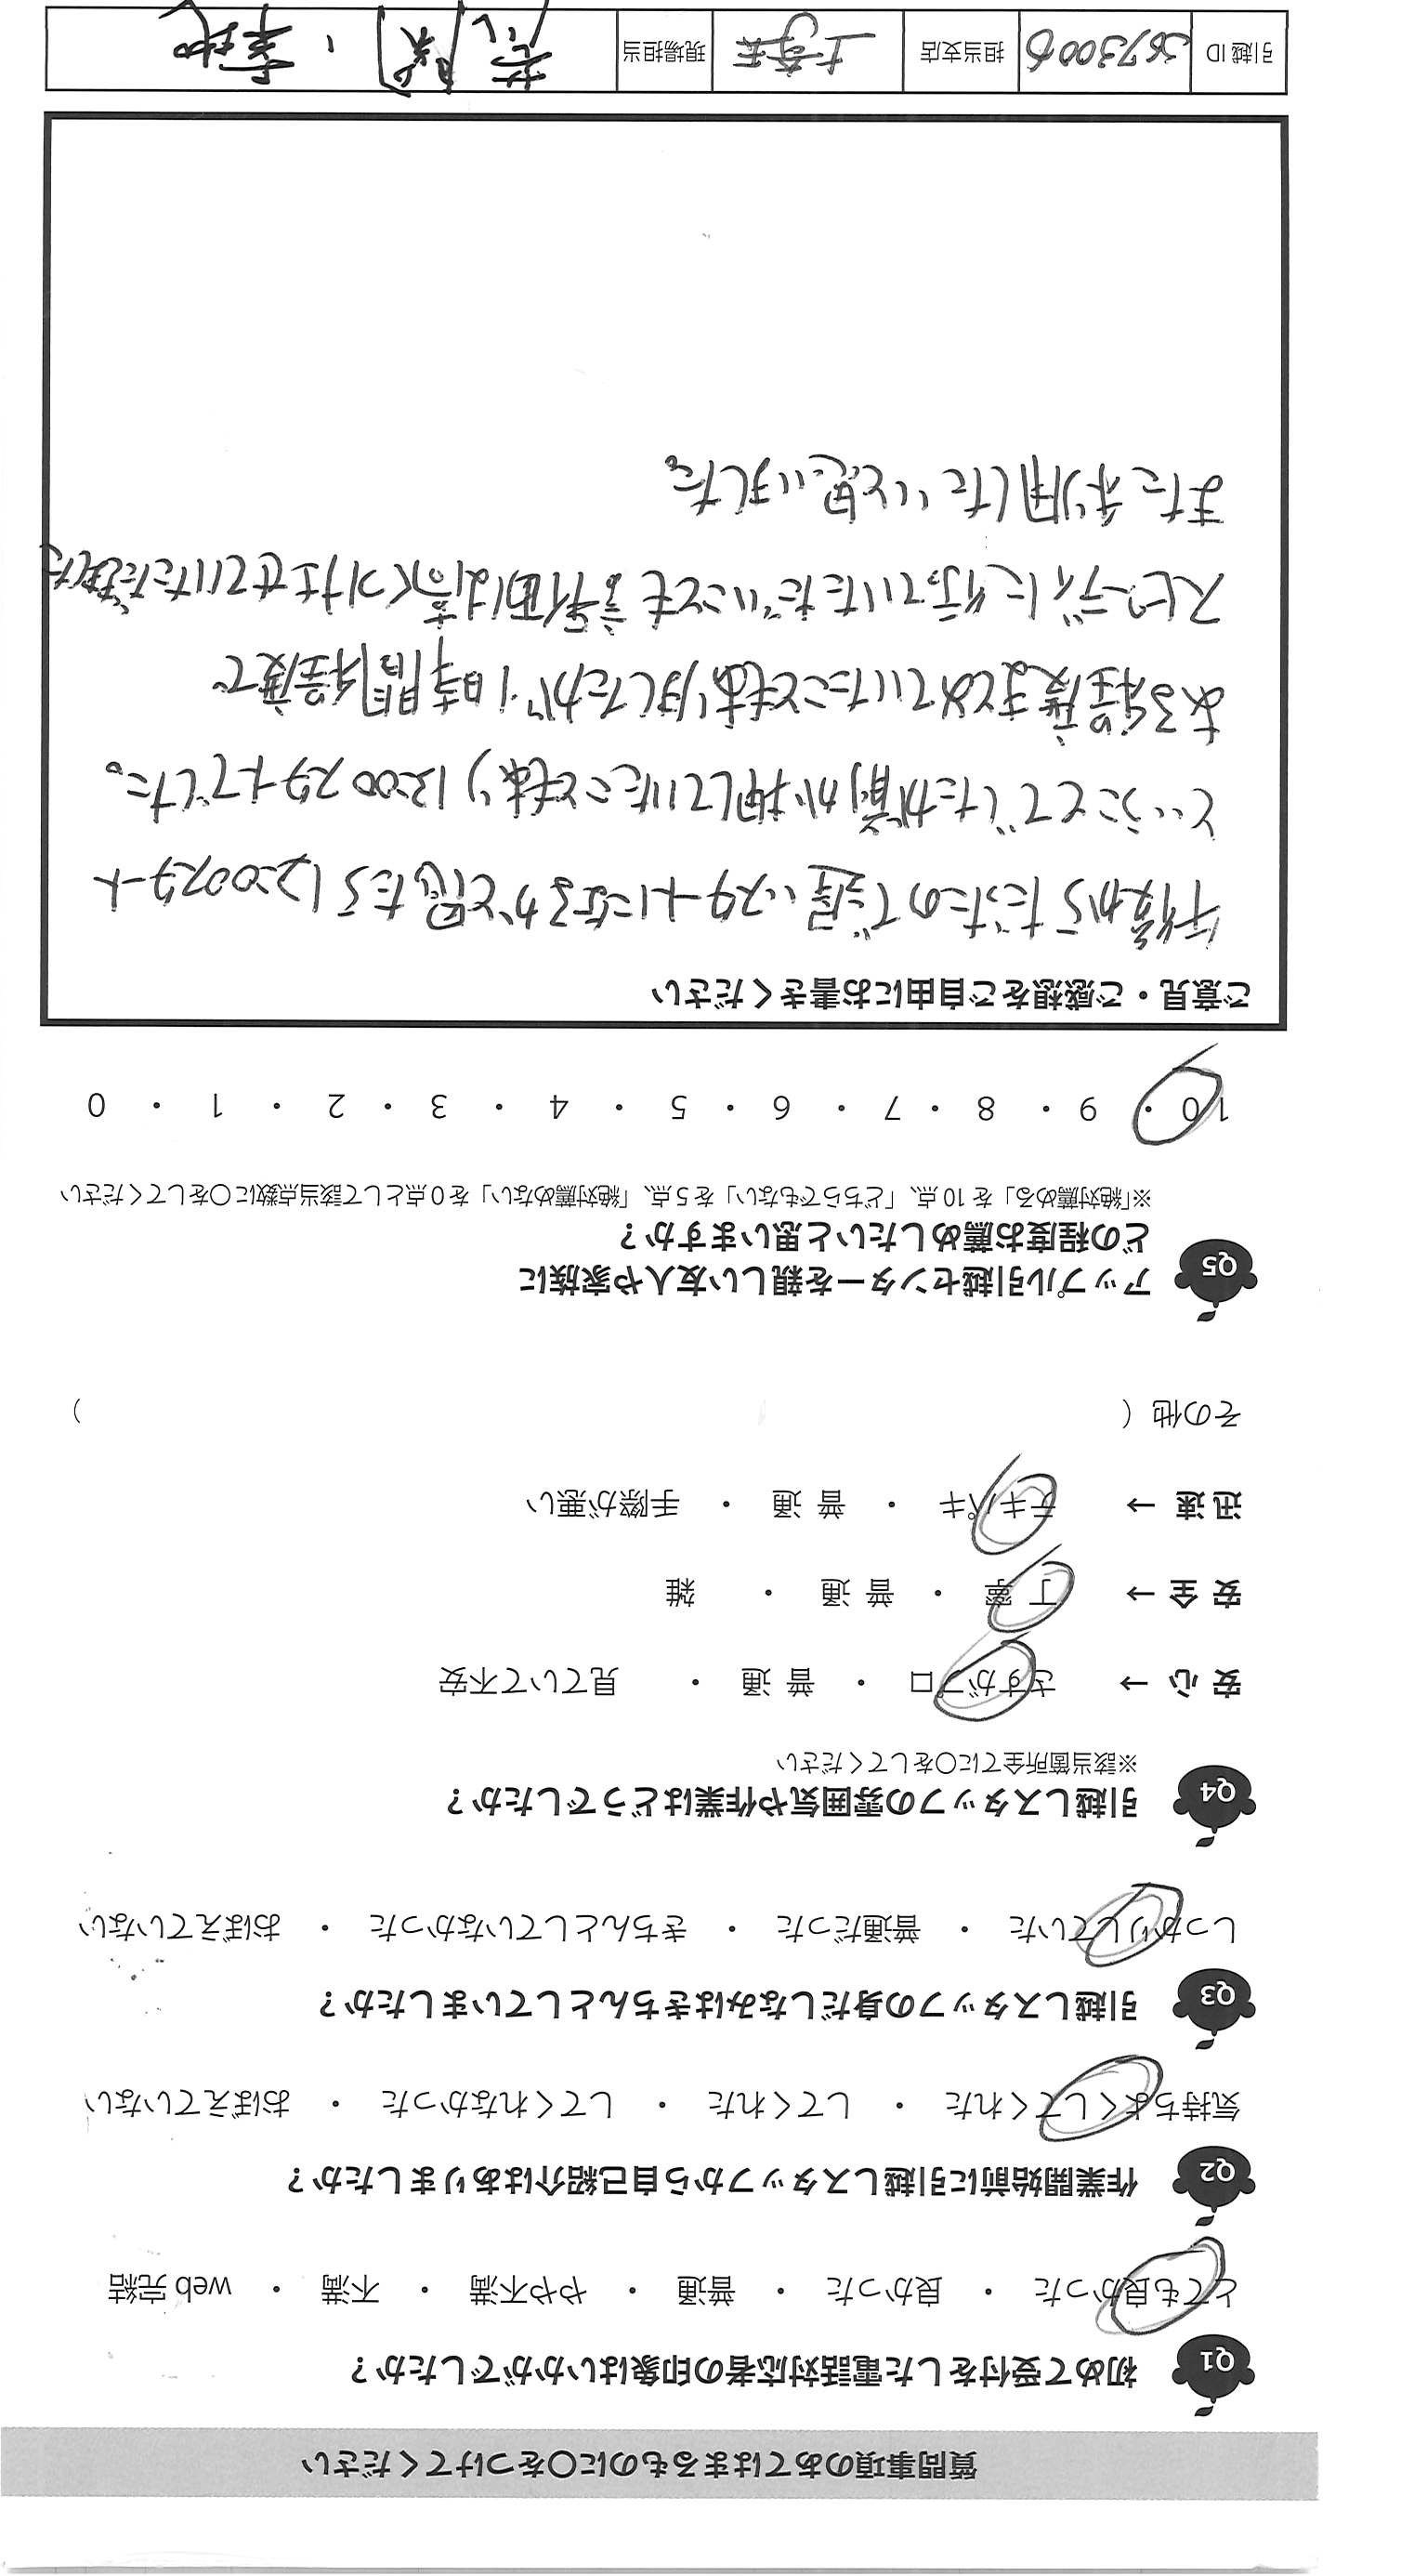 質問事項のあてはまるものに○をつけてください
Q1 初めて受付をした電話対応者の印象はいかがでしたか？
とても良かった ・ 良かった ・ 普通 ・ やや不満 ・ 不満 ・ web 完結
Q2 作業開始前に引越しスタッフから自己紹介はありましたか？
気持ちよくしてくれた ・ してくれた ・ してくれなかった ・ おぼえていない
Q3 引越しスタッフの身だしなみはきちんとしていましたか？
しっかりしていた ・ 普通だった ・ きちんとしていなかった ・ おぼえていない
Q4 引越しスタッフの雰囲気や作業はどうでしたか？
※該当箇所全てに○をしてください
安 心 → さすがプロ ・ 普 通 ・ 見ていて不安
安 全 → 丁 寧 ・ 普 通 ・ 雑
迅 速 → テキパキ ・ 普 通 ・ 手際が悪い
その他（ ）
Q5 アップル引越センターを親しい友人や家族に
どの程度お薦めしたいと思いますか？
※「絶対薦める」を 10 点、「どちらでもない」を 5 点、「絶対薦めない」を 0 点として該当点数に○をしてください
10 ・ 9 ・ 8 ・ 7 ・ 6 ・ 5 ・ 4 ・ 3 ・ 2 ・ 1 ・ 0
ご意見・ご感想をご自由にお書きください
午後からだったので遅いスタートになるかと思ったら12:00スタート
ということでしたが前が押していたこともあり13:00スタートでした。
ある程度まとめていたこともありましたが1時間程度で
スピーディに行っていただいことも評価は高くつけさせていただきました
また利用したいと思いました。
引越 ID 担当支店 現場担当